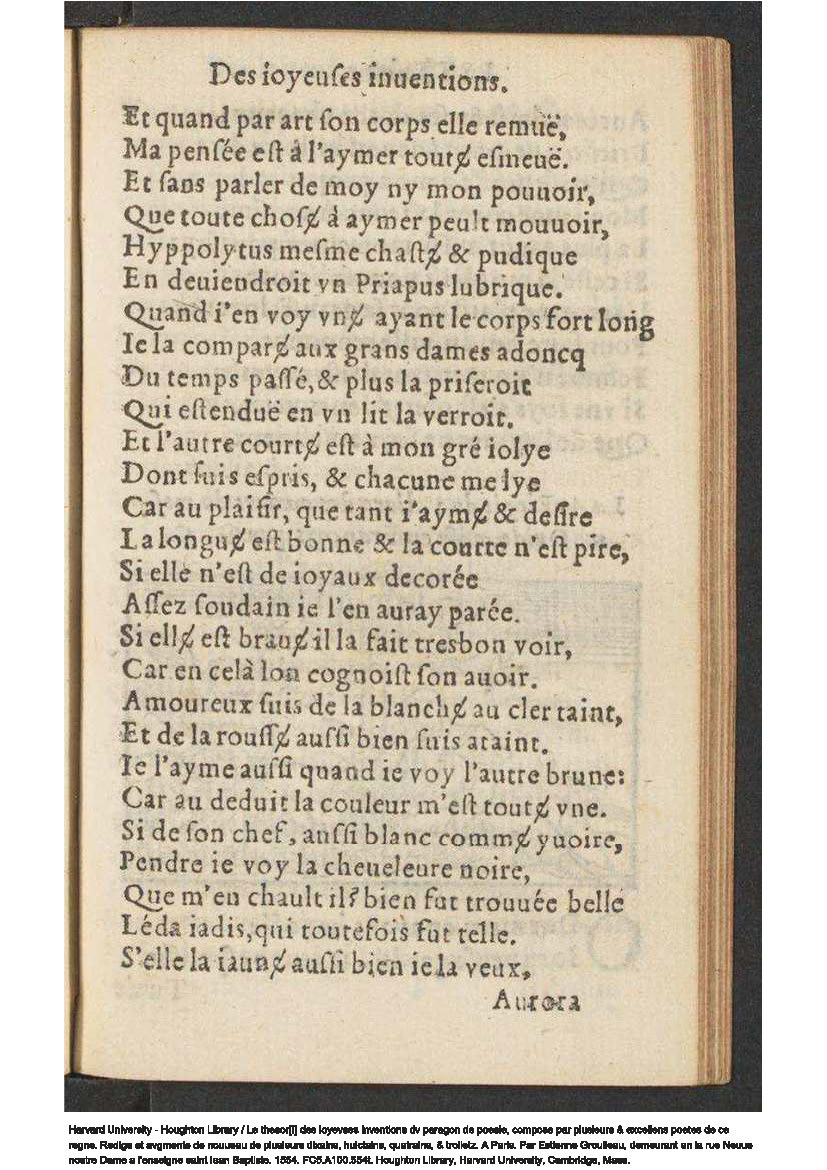 Des ioyeuſes inuentions.
Et quand par art ſon corps elle remuë,
Ma penſée eſt à l'aymer toutɇ eſmeuë.
Et ſans parler de moy ny mon pouuoir,
Que toute choſɇ à aymer peult mouuoir,
Hyppolytus meſme chaſtɇ & pudique
En deuiendroit vn Priapus lubrique.
Quand i'en voy vnɇ ayant le corps fort long
Ie la comparɇ aux grans dames adoncq
Du temps paſſé, & plus la priſeroit
Qui eſtenduë en vn lit la verroit.
Et l'autre courtɇ eſt à mon gré iolye
Dont ſuis eſpris, & chacune me lye
Car au plaiſir, que tant i'aymɇ & deſire
La longuɇ eſt bonne & la courte n'eſt pire,
Si elle n'eſt de ioyaux decorée
Aſſez ſoudain ie l'en auray parée.
Si ellɇ eſt brauɇ il la fait tresbon voir,
Car en celà lon cognoiſt ſon auoir.
Amoureux ſuis de la blanchɇ au cler taint,
Et de la rouſſɇ auſſi bien ſuis ataint.
Ie l'ayme auſſi quand ie voy l'autre brune:
Car au deduit la couleur m'eſt toutɇ vne.
Si de ſon chef, auſſi blanc commɇ yuoire,
Pendre ie voy la cheueleure noire,
Que m'en chault il? bien fut trouuée belle
Léda iadis, qui toutefois fut telle.
S'elle la iaunɇ auſſi bien ie la veux,
Aurora
Harvard University - Houghton Library / Le thesor[i] des ioyevses inventions dv paragon de poesie, compose par plusieurs & excellens poetes de ce
regne. Redige et avgmente de nouueau de plusieurs dixains, huictains, quatrains, & trolletz. A Paris. Par Estienne Groulleau, demeurant en la rue Neuue
nostre Dame a l'enseigne saint Iean Baptiste. 1554. FC5.A100.554t. Houghton Library, Harvard University, Cambridge, Mass.